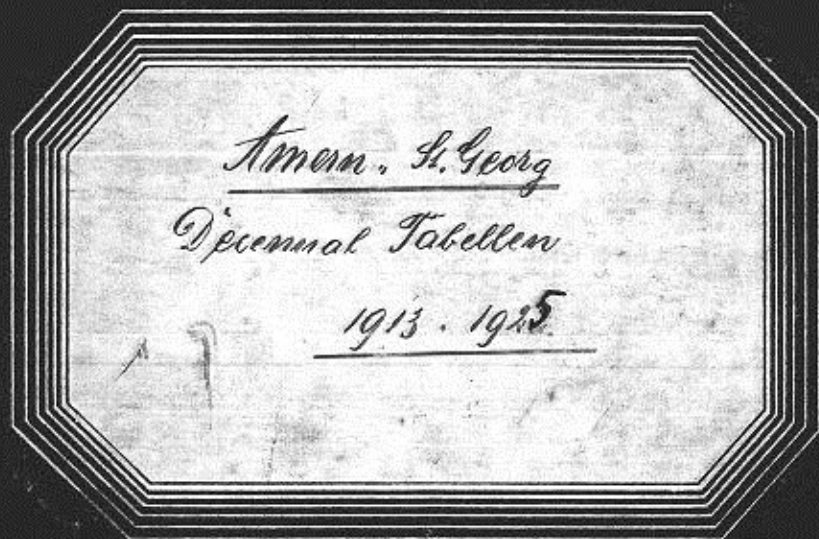 Amern. St. Georg
Decennal Tabellen
1913. 1925